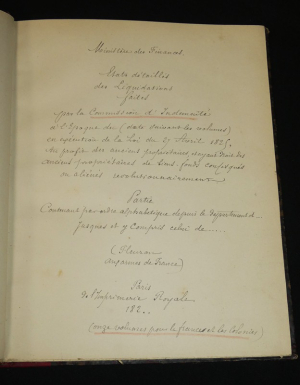 Ministère des Finances
États détaillés
des Liquidations
faites
par la Commission d'Indemnité
à l'époque du (date suivant les volumes)
en exécution de la loi du 27 Avril 1825,
au profit des anciens propriétaires ayant droit des
anciens propriétaires de biens fonds confisqués
ou aliénés révolutionnairement
Partie
Contenant par ordre alphabétique depuis le département d...
jusques et y compris celui de ....
(Fleuron
de France)
Paris
de l'Imprimerie Royale
182..
(onze volumes pour la france et les Colonies)